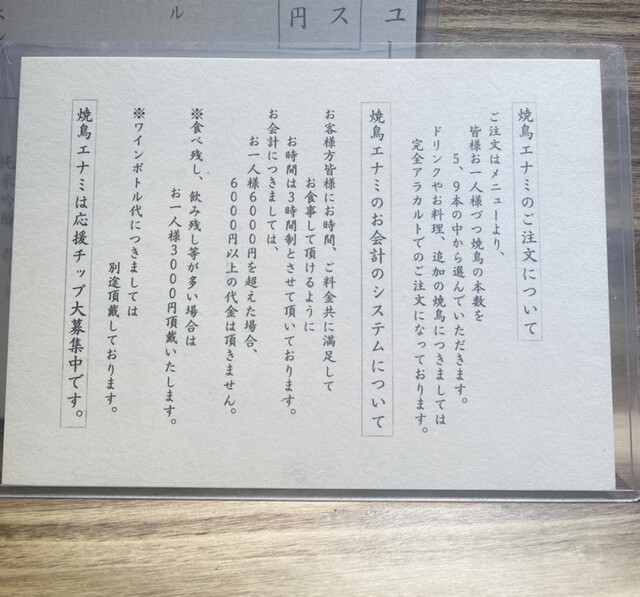 焼鳥エナミのご注文について
ご注文はメニューより、
皆様お一人様づつ焼鳥の本数を
5、9本の中から選んでいただきます。
ドリンクやお料理、追加の焼鳥につきましては
完全アラカルトでのご注文になっております。
焼鳥エナミのお会計のシステムについて
お客様方皆様にお時間、ご料金共に満足して
お食事して頂けるように
お時間は3時間制とさせて頂いております。
お会計につきましては、
お一人様6000円を超えた場合、
6000円以上の代金は頂きません。
※食べ残し、飲み残し等が多い場合は
お一人様3000円頂戴いたします。
※ワインボトル代につきましては
別途頂戴しております。
焼鳥エナミは応援チップ大募集中です。
ユー
ス
円
ル